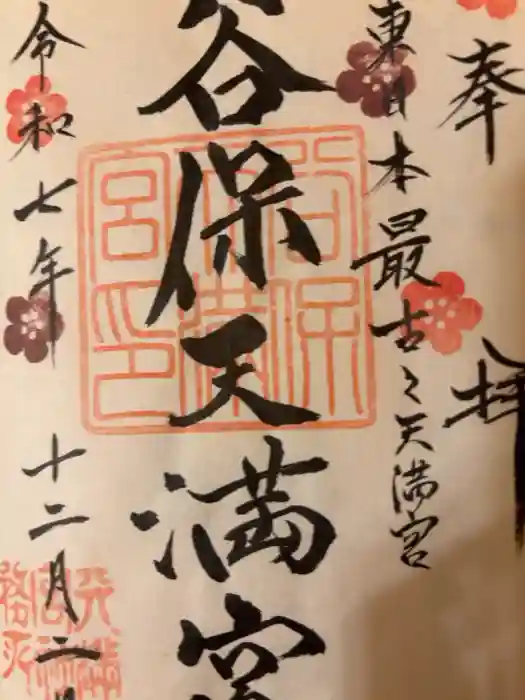 奉拝
東日本最古之天満宮
谷保天満宮
令和七年 十二月二
谷保天満宮印